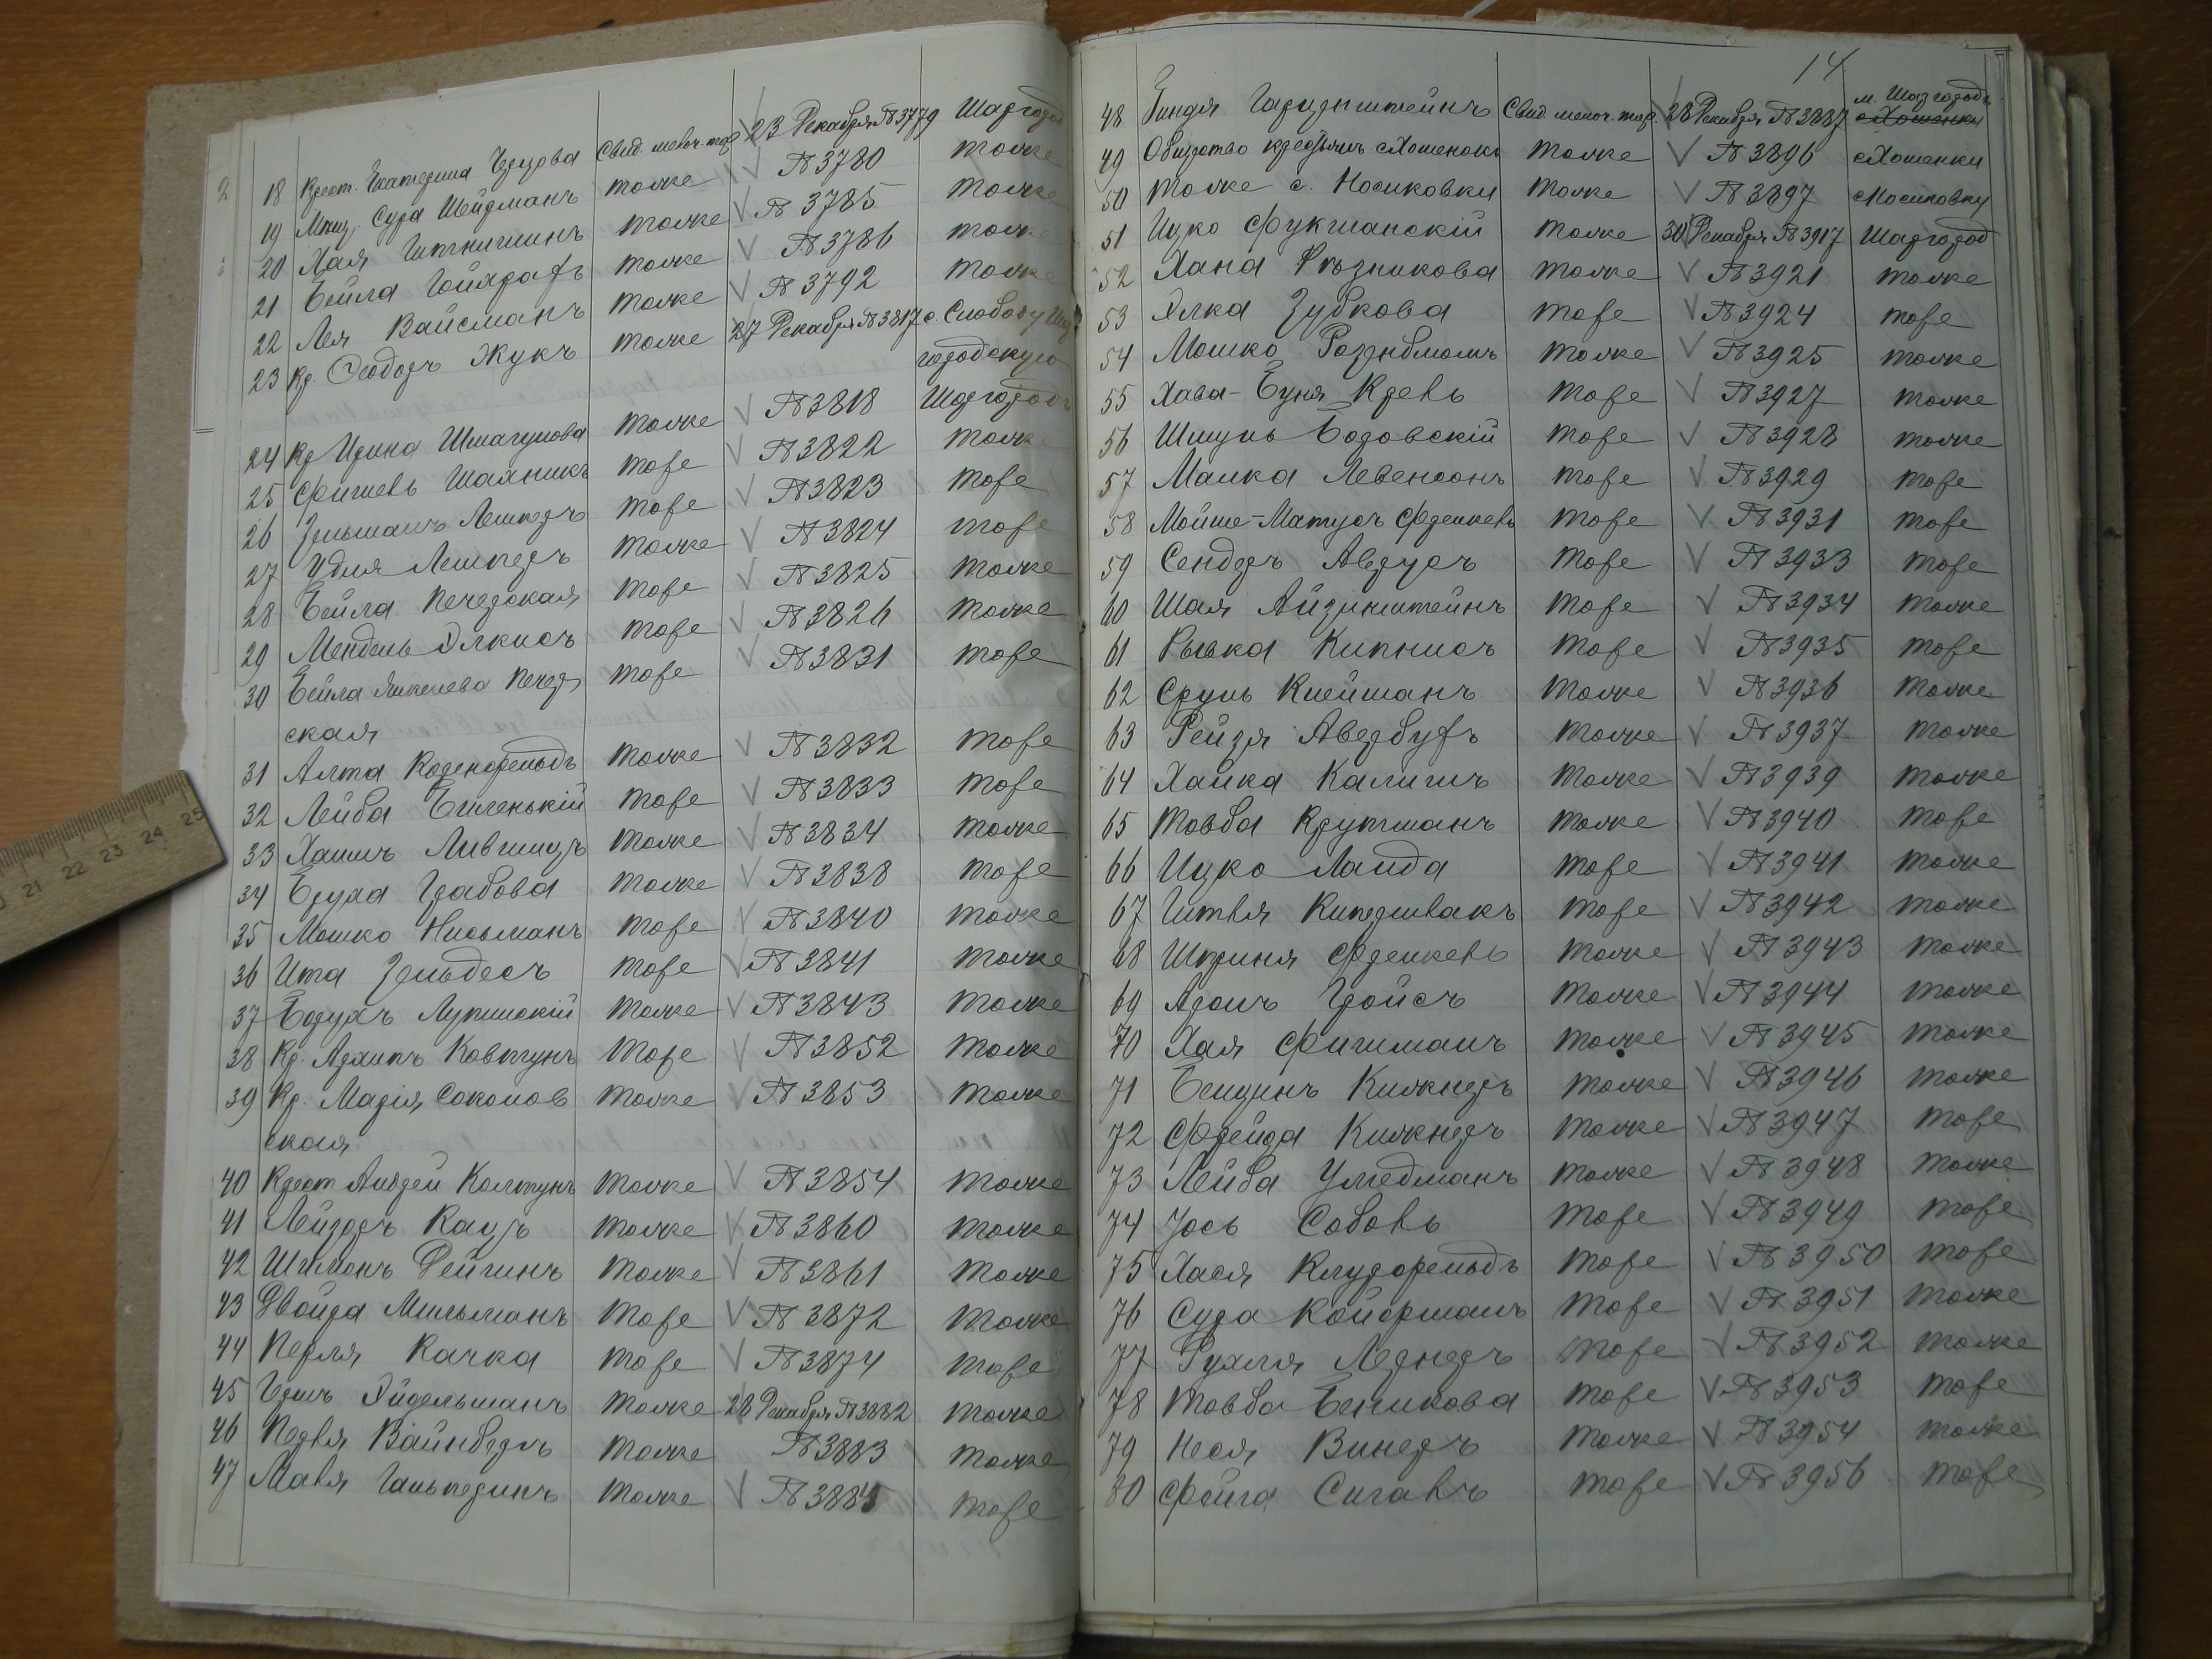 18 Крест. Екатерина Свид. мелоч. тор. 23 Декабря №3779 Шаргород
19 Мещ. Сура Шейдманъ тоже №3780 тоже
20 Хая тоже №3785 тоже
21 Бейла тоже №3786 тоже
22 Лея Вайсманъ тоже №3792 тоже
23 Кр. Ѳеодоръ Жукъ тоже 27 Декабря №3817 с. Слободу Шар
городскую
24 Кр Ирина тоже №3818 Шаргородъ
25 Фишель тоже №3822 тоже
26 Зельманъ Лешнеръ тоже №3823 тоже
27 Удля Лешнеръ тоже №3824 тоже
28 Бейла Печерская тоже №3825 тоже
29 Мендель Элкисъ тоже №3826 тоже
30 Бейла Янкелева Печер тоже №3831 тоже
ская
31 Алта Коренфельдъ тоже №3832 тоже
32 Лейба Биленькій тоже №3833 тоже
33 Хаимъ Лившицъ тоже №3834 тоже
34 Бруха Грабова тоже №3838 тоже
35 Мошко Нисьманъ тоже №3840 тоже
36 Ита Зельдесъ тоже №3841 тоже
37 Борухъ Лупинскій тоже №3843 тоже
38 Кр. Архипъ Ковтунъ тоже №3852 тоже
39 Кр. Марія Соколов тоже №3853 тоже
ская
40 Крест Андрей Колтунъ тоже №3854 тоже
41 Лейзоръ Кацъ тоже №3860 тоже
42 Шлиомъ Рейгинъ тоже №3861 тоже
43 Двойра Мильманъ тоже №3872 тоже
44 Перля Качка тоже №3874 тоже
45 Эйдельманъ тоже 28 Декабря №3882 тоже
46 Перля Вайнберъ тоже №3883 тоже
47 Маля Гальперинъ тоже №3885 тоже
14
48 Гиндя Свид. мелоч. тор. 28 Декабря №3887 м. Шаргородъ
49 Общество крестьянъ тоже №3896
50 тоже с. Носиковки тоже №3897 Носиковку
51 Ицко Фукшанскій тоже 30 Декабря №3917 Шаргород
52 Хана Рѣзникова тоже №3921 тоже
53 Элка Зубкова тоже №3924 тоже
54 Мошко Розенблюмъ тоже №3925 тоже
55 Хава-Буня Крель тоже №3927 тоже
56 Шмуль Боровскій тоже №3928 тоже
57 Малка Левенсонъ тоже №3929 тоже
58 Мойше-Матусъ Френкель тоже №3931 тоже
59 Сендеръ Авербухъ тоже №3933 тоже
60 Шая Айзинштейнъ тоже №3934 тоже
61 Рывка Кипнисъ тоже №3935 тоже
62 Сруль Клейманъ тоже №3936 тоже
63 Рейзя Авербухъ тоже №3937 тоже
64 Хайка Калишъ тоже №3939 тоже
65 Товба Крутманъ тоже №3940 тоже
66 Ицко Ланда тоже №3941 тоже
67 Гитля Кипершлакъ тоже №3942 тоже
68 Шприня Френкель тоже №3943 тоже
69 Аронъ Гройсъ тоже №3944 тоже
70 Хая Фишманъ тоже №3945 тоже
71 Бенцинъ Килжнеръ тоже №3946 тоже
72 Фрейда Килжнеръ тоже №3947 тоже
73 Лейба Ульдманъ тоже №3948 тоже
74 Іось Соболь тоже №3949 тоже
75 Хася Клузфельдъ тоже №3950 тоже
76 Сура Койфманъ тоже №3951 тоже
77 Рухля Лернеръ тоже №3952 тоже
78 Товба Беликова тоже №3953 тоже
79 Неся Винеръ тоже №3954 тоже
80 Фейга Сигалъ тоже №3956 тоже
21 22 23 24 25